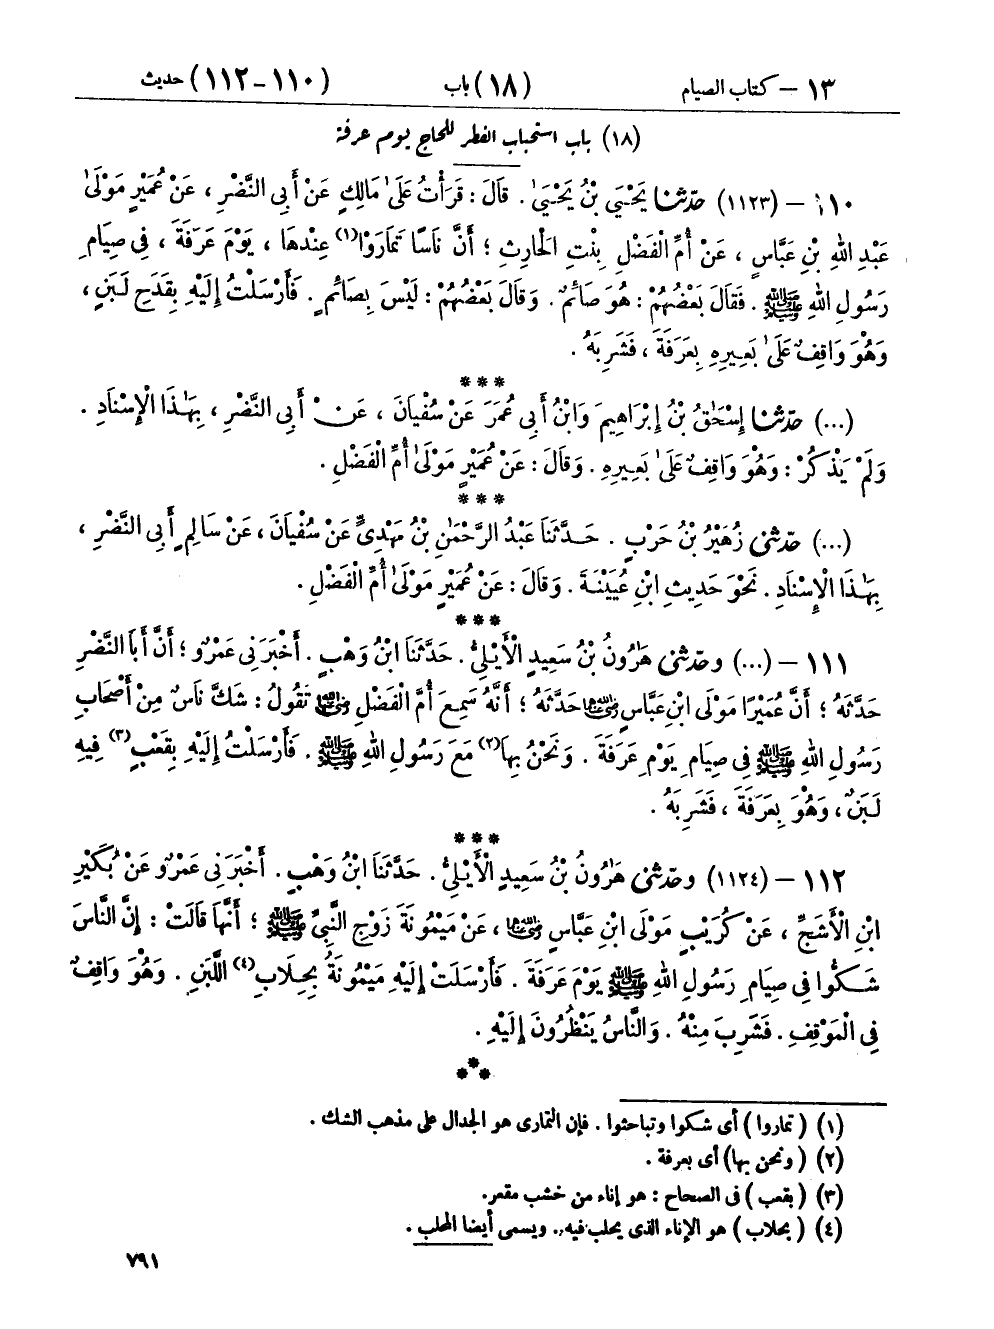 ١٣ – كتاب الصيام (١٨) باب (١١٠-١١٢) حديث
(١٨) باب استحباب الفطر للحاج يوم عرفة
١١٠ – (١١٢٣) حَدَّثَنَا يَحْيَىٰ بْنُ يَحْيَىٰ . قَالَ : قَرَأْتُ عَلَىٰ مَالِكٍ عَنْ أَبِي النَّضْرِ ، عَنْ عُمَيْرٍ مَوْلَىٰ
عَبْدِ اللهِ بْنِ عَبَّاسٍ ، عَنْ أُمِّ الْفَضْلِ بِنْتِ الْحَارِثِ ؛ أَنَّ نَاسًا تَمَارَوْا(١) عِنْدَهَا ، يَوْمَ عَرَفَةَ ، فِي صِيَامِ
رَسُولِ اللهِ ﷺ . فَقَالَ بَعْضُهُمْ : هُوَ صَائِمٌ . وَقَالَ بَعْضُهُمْ : لَيْسَ بِصَائِمٍ . فَأَرْسَلْتُ إِلَيْهِ بِقَدَحِ لَبَنٍ ،
وَهُوَ وَاقِفٌ عَلَىٰ بَعِيرِهِ بِعَرَفَةَ ، فَشَرِبَهُ .
***
(...) حَدَّثَنَا إِسْحَٰقُ بْنُ إِبْرَاهِيمَ وَابْنُ أَبِي عُمَرَ عَنْ سُفْيَانَ ، عَنْ أَبِي النَّضْرِ ، بِهَٰذَا الْإِسْنَادِ .
وَلَمْ يَذْكُرْ : وَهُوَ وَاقِفٌ عَلَىٰ بَعِيرِهِ . وَقَالَ : عَنْ عُمَيْرٍ مَوْلَىٰ أُمِّ الْفَضْلِ .
***
(...) حَدَّثَنِي زُهَيْرُ بْنُ حَرْبٍ . حَدَّثَنَا عَبْدُ الرَّحْمَٰنِ بْنُ مَهْدِيٍّ عَنْ سُفْيَانَ ، عَنْ سَالِمٍ أَبِي النَّضْرِ ،
بِهَٰذَا الْإِسْنَادِ . نَحْوَ حَدِيثِ ابْنِ عُيَيْنَةَ . وَقَالَ : عَنْ عُمَيْرٍ مَوْلَىٰ أُمِّ الْفَضْلِ .
***
١١١ – (...) وحَدَّثَنِي هَٰرُونُ بْنُ سَعِيدٍ الْأَيْلِيُّ . حَدَّثَنَا ابْنُ وَهْبٍ . أَخْبَرَنِي عَمْرٌو ؛ أَنَّ أَبَا النَّضْرِ
حَدَّثَهُ ؛ أَنَّ عُمَيْرًا مَوْلَى ابْنِ عَبَّاسٍ رضي الله عنهما حَدَّثَهُ ؛ أَنَّهُ سَمِعَ أُمَّ الْفَضْلِ رضي الله عنها تَقُولُ : شَكَّ نَاسٌ مِنْ أَصْحَابِ
رَسُولِ اللهِ ﷺ فِي صِيَامِ يَوْمِ عَرَفَةَ . وَنَحْنُ بِهَا(٢) مَعَ رَسُولِ اللهِ ﷺ . فَأَرْسَلْتُ إِلَيْهِ بِقَعْبٍ(٣) فِيهِ
لَبَنٌ ، وَهُوَ بِعَرَفَةَ ، فَشَرِبَهُ .
***
١١٢ – (١١٢٤) وحَدَّثَنِي هَٰرُونُ بْنُ سَعِيدٍ الْأَيْلِيُّ . حَدَّثَنَا ابْنُ وَهْبٍ . أَخْبَرَنِي عَمْرٌو عَنْ بُكَيْرِ
ابْنِ الْأَشَجِّ ، عَنْ كُرَيْبٍ مَوْلَى ابْنِ عَبَّاسٍ رضي الله عنهما ، عَنْ مَيْمُونَةَ زَوْجِ النَّبِيِّ ﷺ ؛ أَنَّهَا قَالَتْ : إِنَّ النَّاسَ
شَكُّوا فِي صِيَامِ رَسُولِ اللهِ ﷺ يَوْمَ عَرَفَةَ . فَأَرْسَلَتْ إِلَيْهِ مَيْمُونَةُ بِحِلَابِ(٤) اللَّبَنِ . وَهُوَ وَاقِفٌ
فِي الْمَوْقِفِ . فَشَرِبَ مِنْهُ . وَالنَّاسُ يَنْظُرُونَ إِلَيْهِ .
***
(١) ( تماروا ) أى شكوا وتباحثوا . فإن التمارى هو الجدال على مذهب الشك .
(٢) ( ونحن بها) أى بعرفة .
(٣) ( بقعب ) فى الصحاح : هو إناء من خشب مقعر.
(٤) ( بحلاب ) هو الإناء الذى يحلب فيه . ويسمى أيضا المحلب .
٧٩١